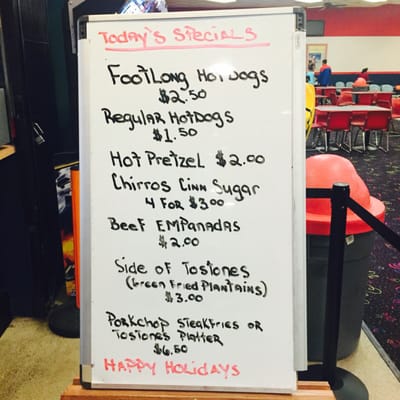 Today's Specials
Footlong Hotdogs
$2.50
Regular Hotdogs
$1.50
Hot Pretzel $2.00
Chirros Cinn Sugar
4 for $3.00
Beef Empanadas
$2.00
Side of Tostones
(Green Fried Plantains)
$3.00
Porkchop Steakfries or
Tostones Platter
$6.50
Happy Holidays